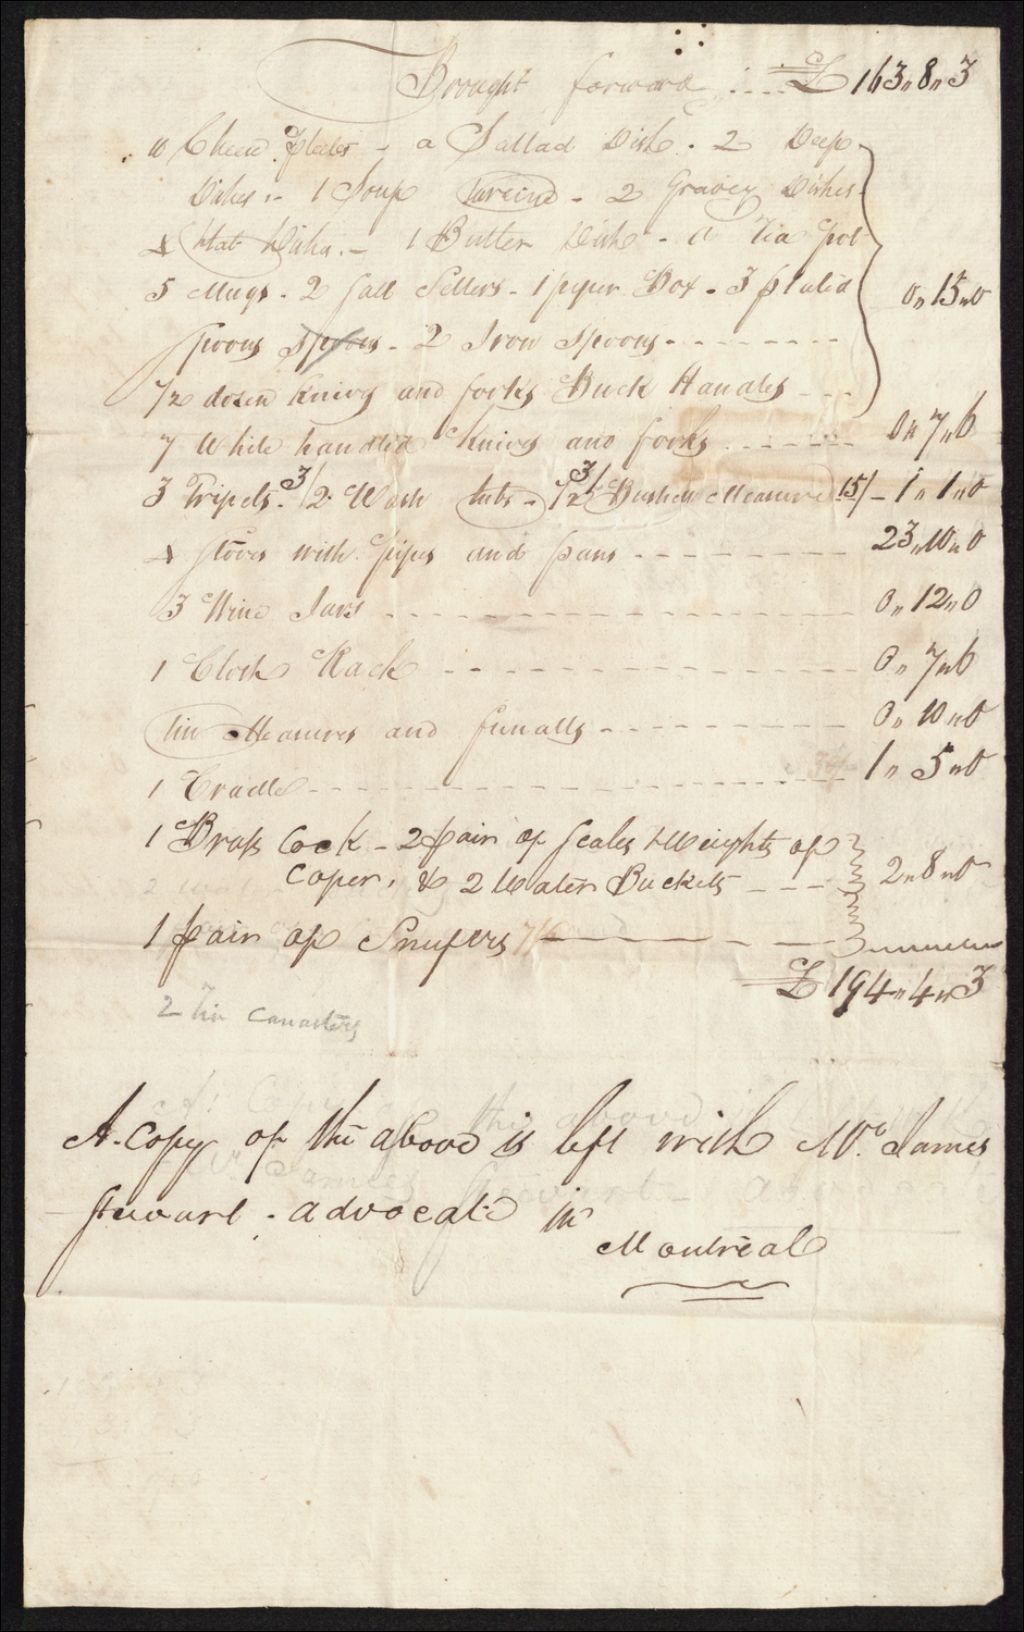 Brought forward .... £ 163,, 8,, 3
10 Chees Plates - a Sallad Dish - 2 Deep
Dishes - 1 Soup tureind - 2 Gravey Dishes
4 Flat Dishes - 1 Butter Dish - a Tea Pot
5 Mugs - 2 Salt Sellers - 1 peper Box - 3 plated 0,, 15,, 0
Spoons Spoons - 2 Iron Spoons
1/2 dozen knives and forks Buck Handles
7 White handled Knives and forks 0,, 7,, 6
3 Tripets 3/ 2 Wash tubs - 3/ 1/2 Bushen Measure 15/ - 1,, 1,, 0
4 Stoves with Pipes and pans 23,, 10,, 0
3 Wine Jars 0,, 12,, 0
1 Clock Rack 0,, 7,, 6
Tin Measures and funalls 0,, 10,, 0
1 Cradle 1,, 5,, 0
1 Brass Cock - 2 pair of Scales & Weights of
Coper, & 2 Water Buckets 2,, 8,, 0
1 pair of Snufers 7/6
£ 194,, 4,, 3
2 Tin Canasters
A Copy of the above is left with Mr. James
Stewart - advocate in
Montreal